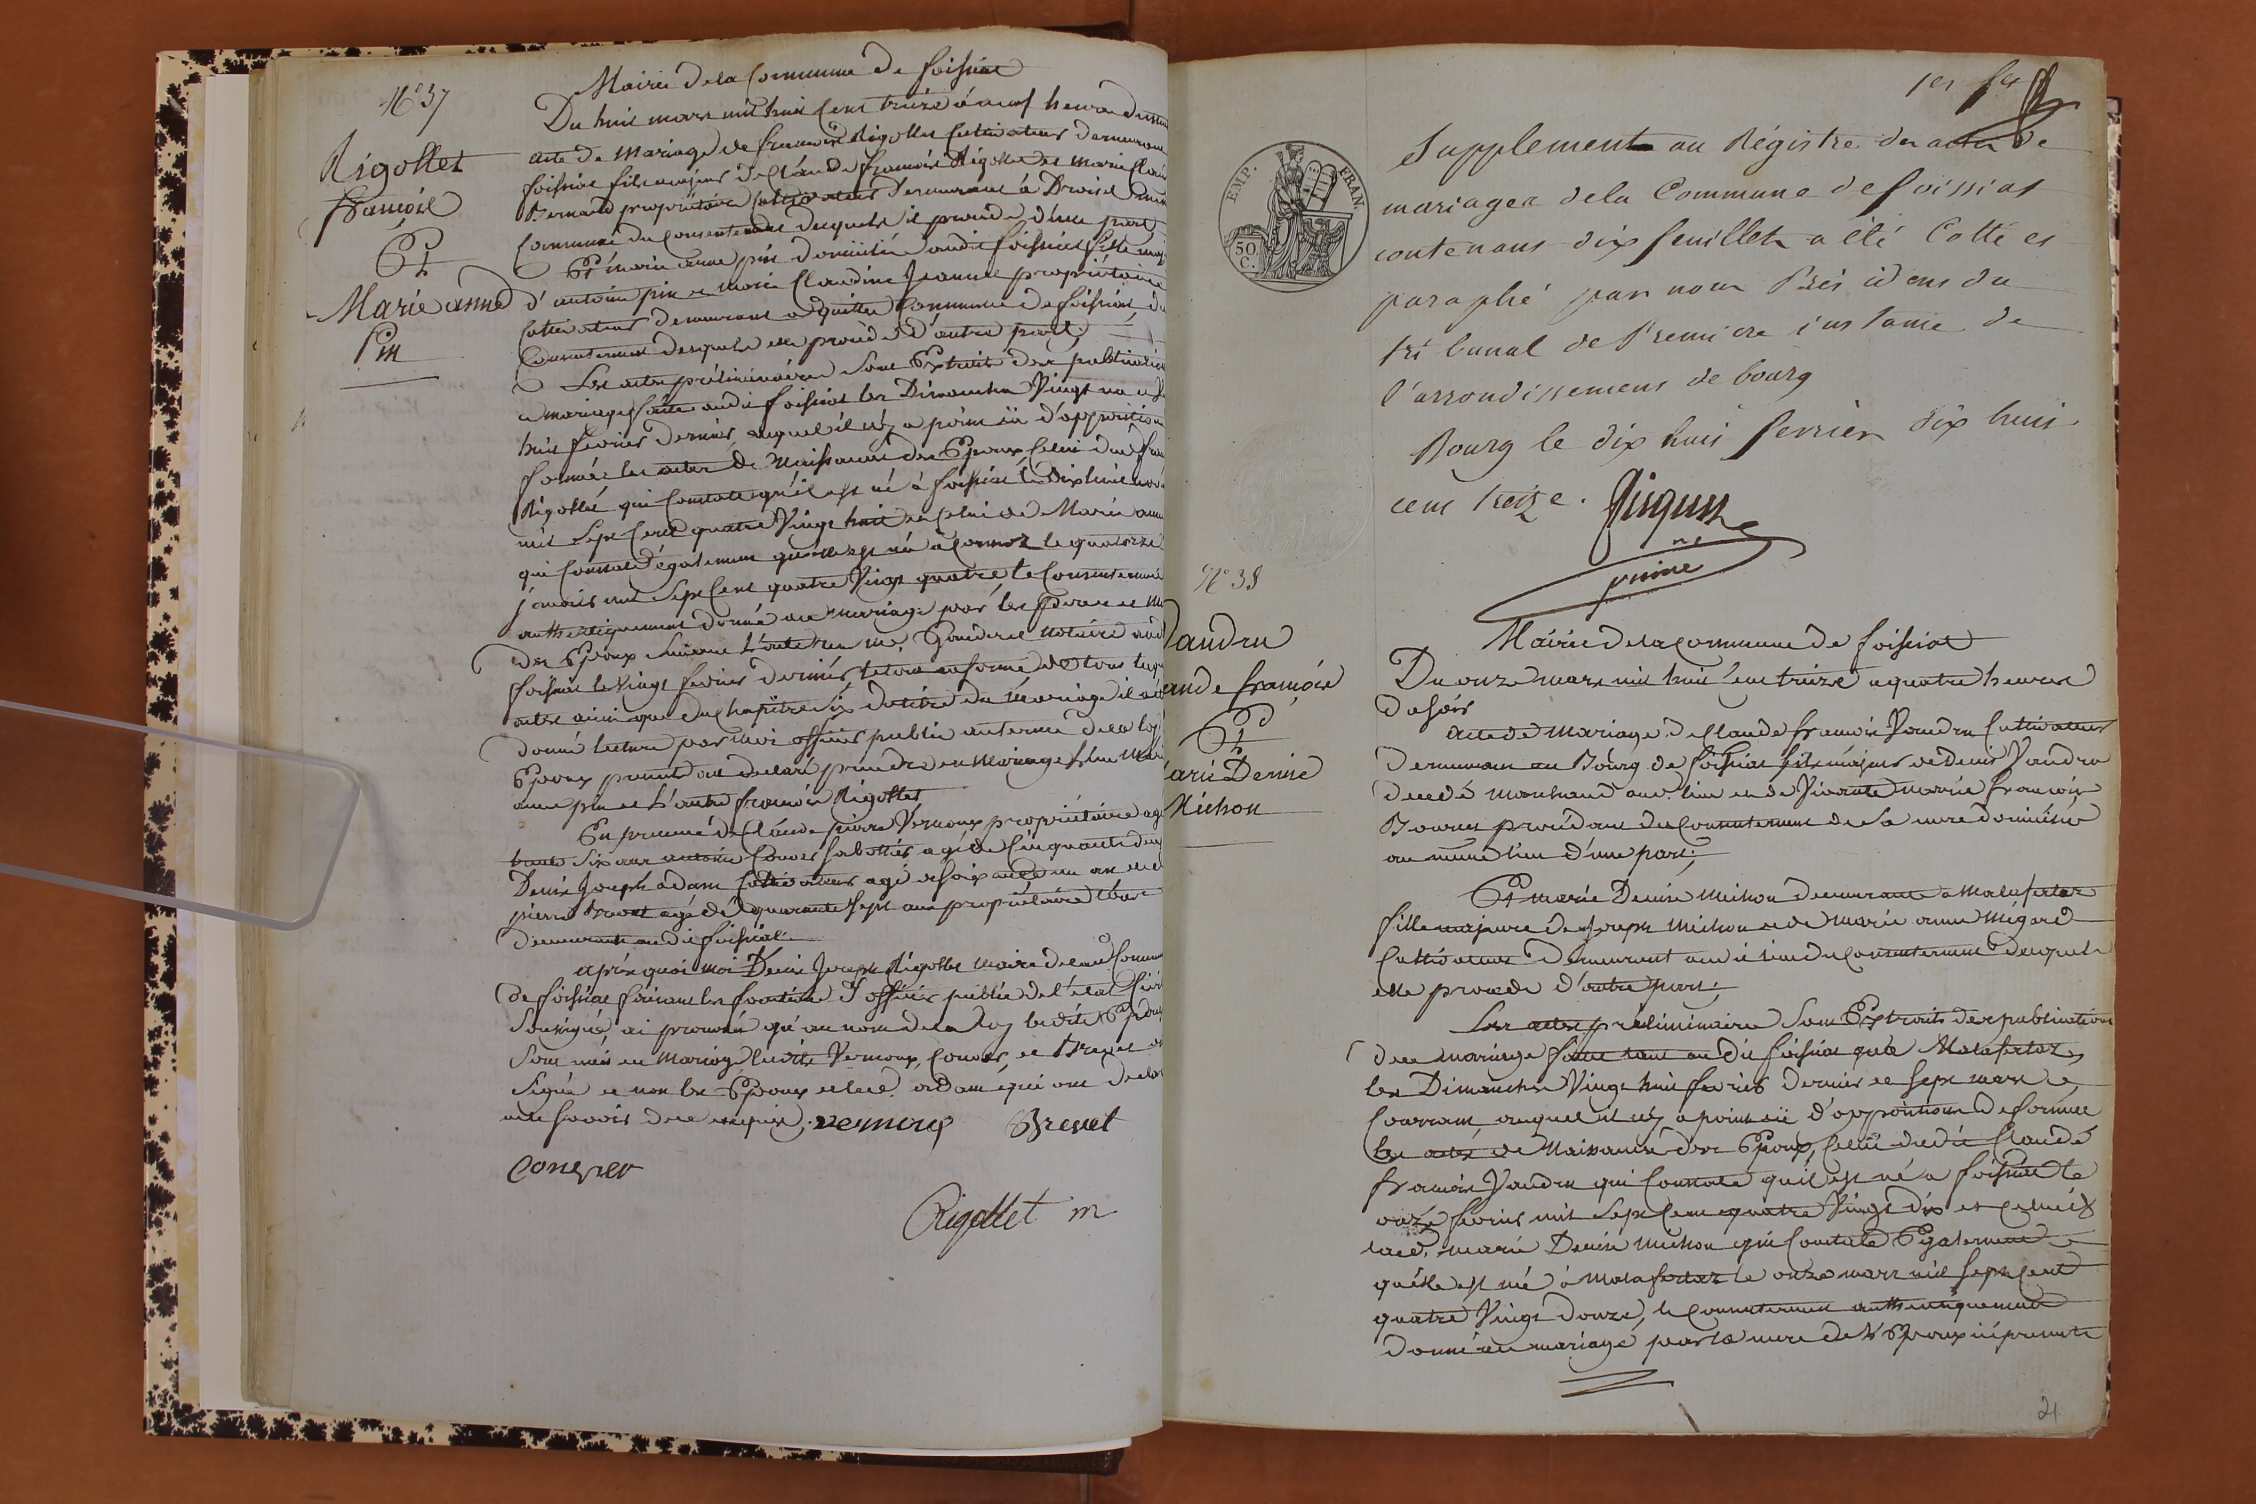 N° 37
Rigollet
françois
Et
Marie anne
Pin
Mairie de la Commune de foissiat
Du huit mars mil huit Cent treize à neuf heures du
acte de Mariage de francois Rigollet Cultivateur demeurant
foissiat fils majeur de Claude francois Rigollet et marie
Bernard propriétaire Cultivateurs demeurant à
Commune du Consentement desquels il procede d'une part
Et marie anne pin domiciliée audit foissiat fille
d'antoine pin et marie Claudine Jeannet propriétaire
Cultivateurs demeurant commune de foissiat du
Consentement desquels elle procède d'autre part;
Les actes préliminaires sont Extraits des publications
de mariage faites audit foissiat les Dimanches Vingt un et
huit fevrier dernier auquel il n'y a point eü d'opposition
formée les actes de Naissances des Epoux Celui du
Rigollet qui Constate qu'il est né à foissiat le dix huit
mil Sept Cent quatre Vingt huit et Celui de Marie anne
qui Constate également qu'elle est née a Cormoz le quatorze
janvier mil Sept Cent quatre Vingt quatre le Consentement
authentiquement donné au mariage par les peres et
des Epoux suivant L'acte reçu me. notaire
foissiat le Vingt fevrier dernier, le tout en forme de tous les
actes ainsi que du Chapitre Six du titre du Mariage il a été
donné lecture par moi officier public au terme de la loy
Epoux present ont declaré prendre en Mariage L'un Marie
anne pin et L'autre francois Rigollet
En presence de Claude pierre Vernoux propriétaire agé
trente Six ans antoine Convert sabottier agé de Cinquante deux
Denis Joseph adam Cultivateur agé de soixante un an et
pierre Brevet agé de quarante Sept ans propriétaire tous
demeurants audit foissiat
après quoi moi Denis Joseph Rigollet maire de laditte Commune
de foissiat faisant les fonctions d'officier public de l'état Civil
Soussigné ai prononcé qu'au nom de la loy lesdits Epoux
sont unis en Mariage, lesdits Vernoux, Convert, et Brevet ont
Signé et non les Epoux et led. adam qui ont declaré
ne le savoir de ce enquis. vernoux Brevet
Convert
Rigollet m
1er f.et
EMP. FRAN.
50 C.
Supplement au Régistre des actes de
mariages de la Commune de foissiat
contenant dix feuillets a été Cotté et
paraphé par nous Président du
tribunal de Premiere instance de
l'arrondissement de bourg
Bourg le dix huit fevrier dix huit
cent treize.
N° 38
Vandru
françois
Et
Denise
Michon
Mairie de la Commune de foissiat
Du onze mars mil huit Cent treize a quatre heures
du soir
acte de Mariage de Claude francois Vandru Cultivateur
demeurant au Bourg de foissiat fils majeur de Denis Vandru
decedé marchand aud. lieu et de Vivante marie francoise
procédant du Consentement de Sa mere domiciliée
au même lieu d'une part;
Et marie Denise Michon demeurante a Malafretaz
fille majeure de Joseph Michon et de marie anne Mégard
Cultivateurs demeurant audit lieu du Consentement desquels
elle procede d'autre part;
Les actes préliminaires sont Extraits des publications
de ce mariage faites tant audit foissiat qu'a Malafretaz,
les Dimanches Vingt huit fevrier dernier et sept mars
Courrant auquel il n'y a point eü d'opposition de formée
les actes de Naissances des Epoux, Celui dudit Claude
francois Vandru qui Constate qu'il est né a foissiat le
onze fevrier mil Sept Cent quatre Vingt dix et celui de
lad. marie Denise Michon qui Constate Egalement
qu'elle est née à Malafretaz le onze mars mil sept Cent
quatre Vingt douze, le Consentement authentiquement
donné au mariage par la mere de l'Epoux ici presente
21